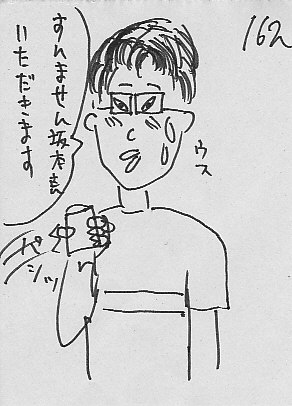 162
すんません坂本さん
いただきます
ウス
パシッ